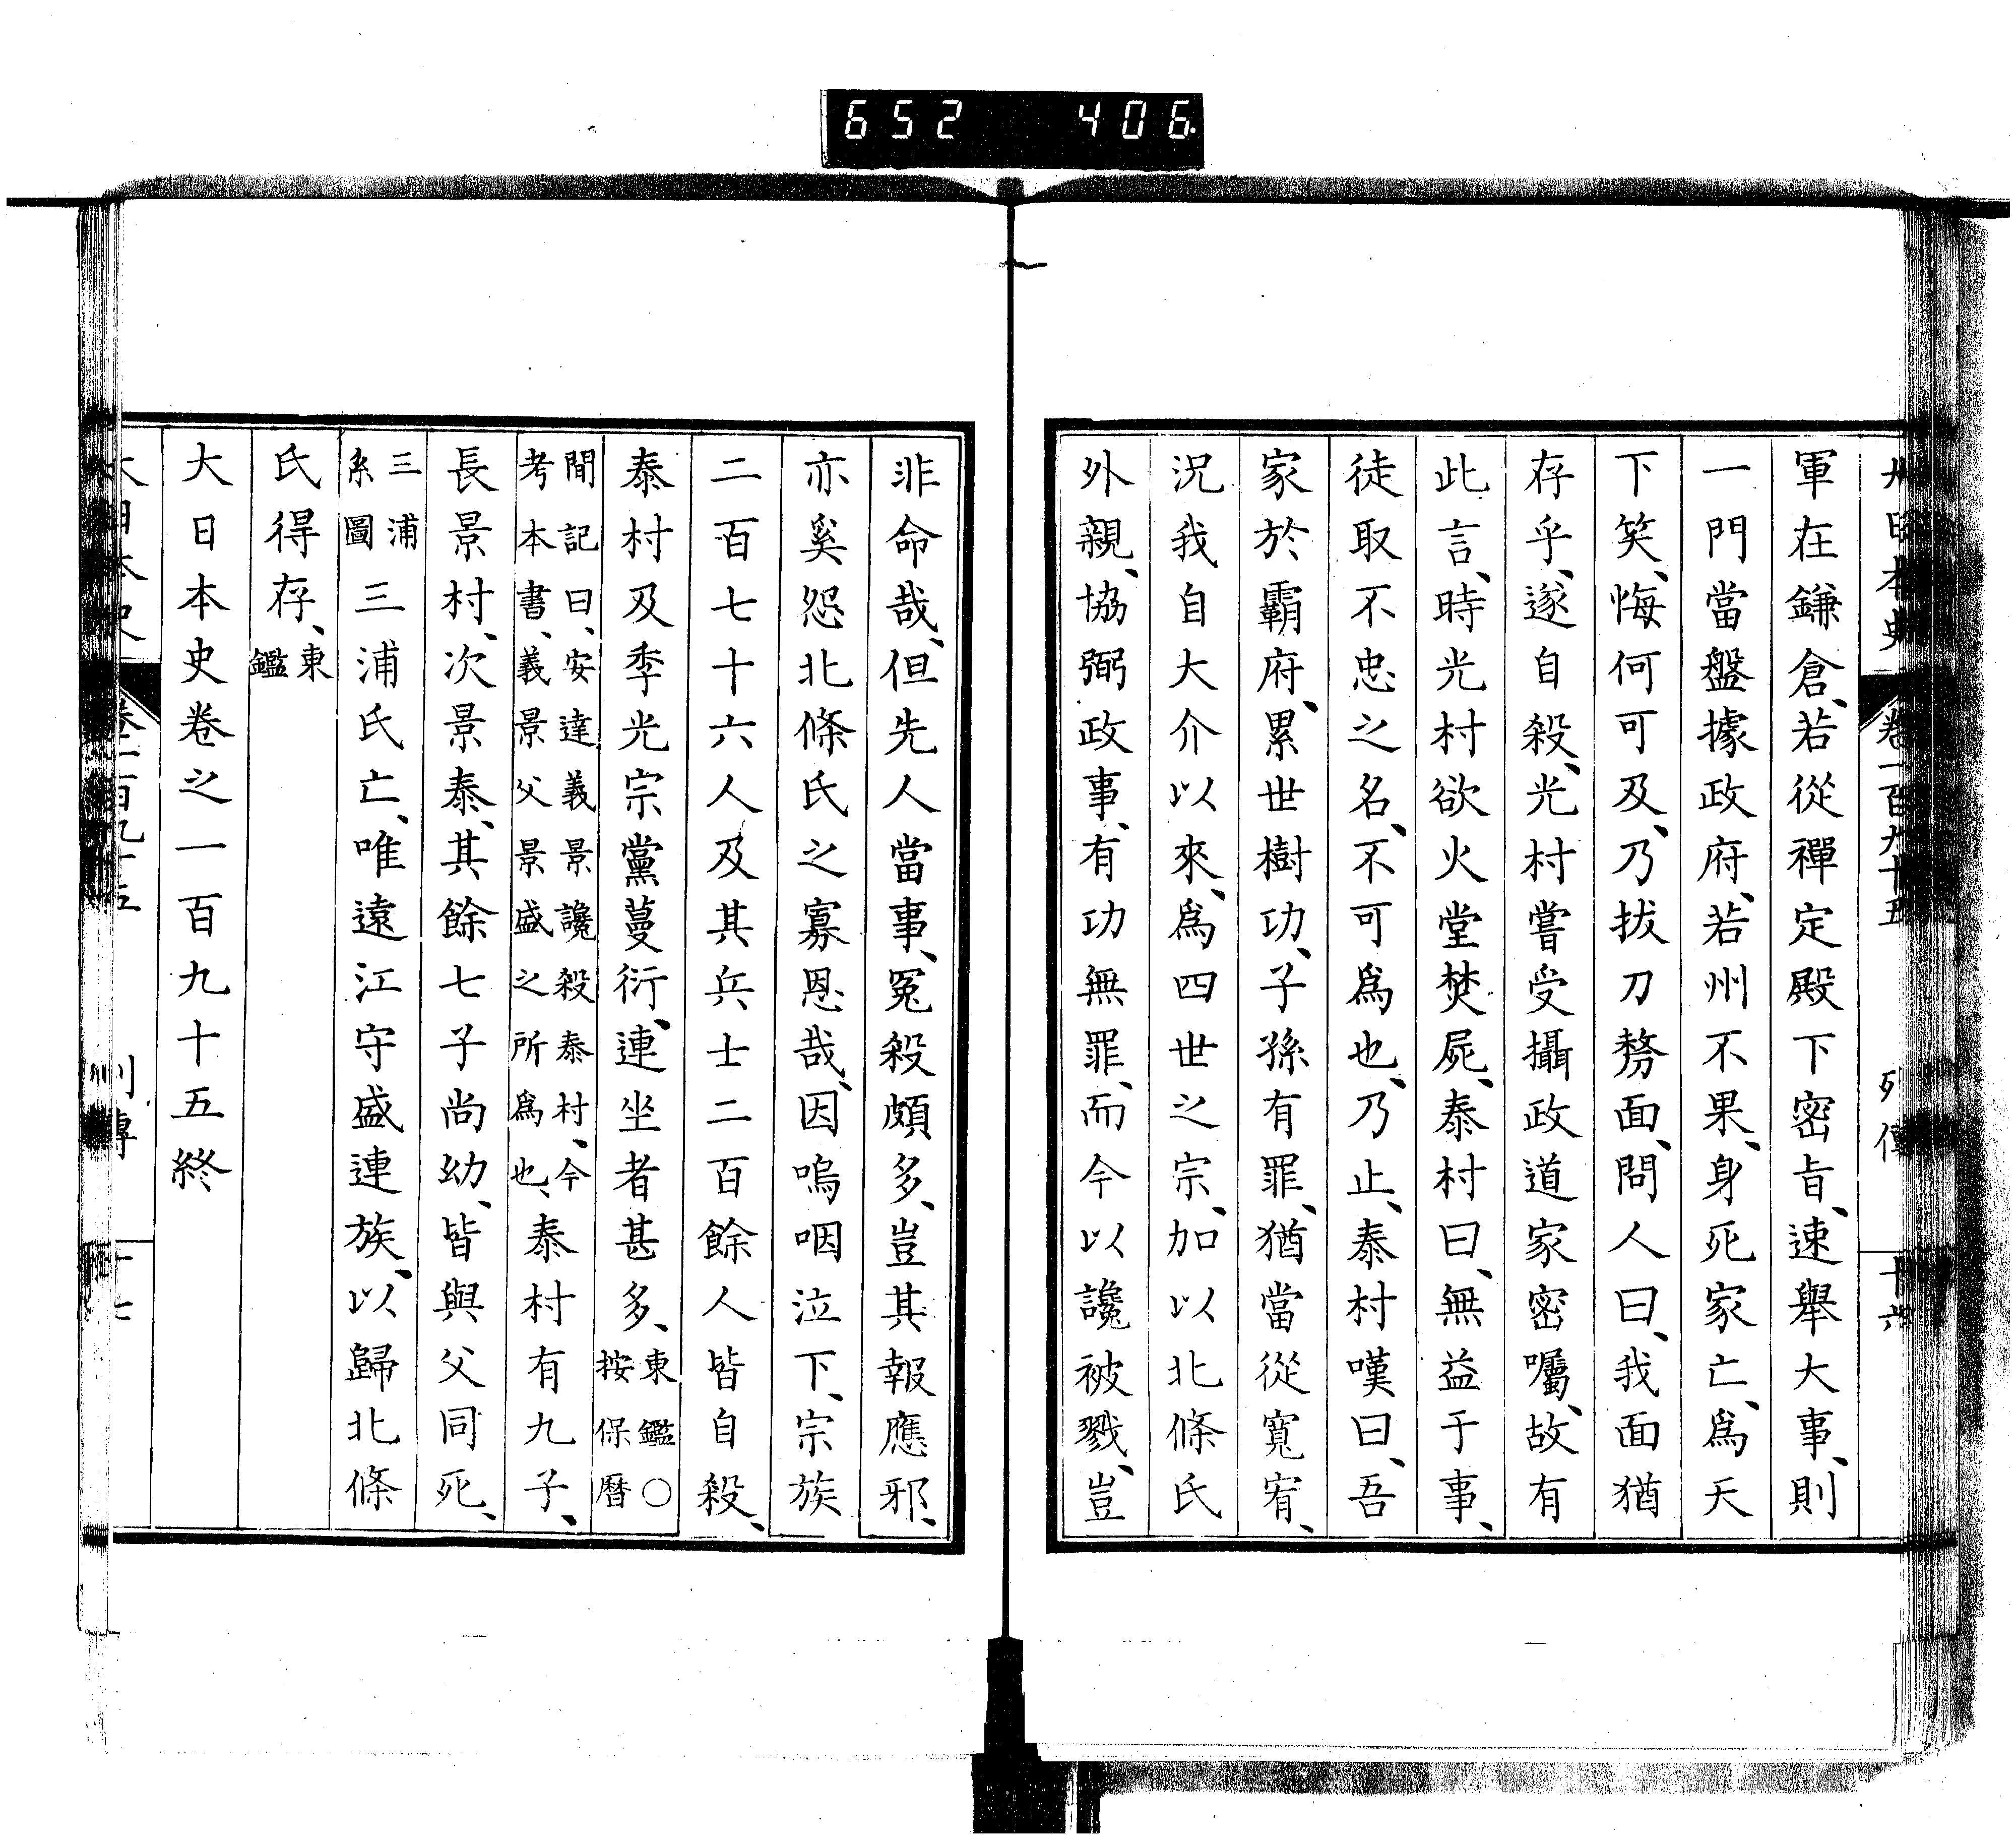 652 406
大日本史 卷一百九十五 列傳 十六
軍在鎌倉、若從禪定殿下密旨、速舉大事、則
一門當盤據政府、若州不果、身死家亡、爲天
下笑、悔何可及、乃拔刀剺面、問人曰、我面猶
存乎、遂自殺、光村嘗受攝政道家密囑、故有
此言、時光村欲火堂焚屍、泰村曰、無益于事、
徒取不忠之名、不可爲也、乃止、泰村嘆曰、吾
家於霸府、累世樹功、子孫有罪、猶當從寬宥、
況我自大介以來、爲四世之宗、加以北條氏
外親、協弼政事、有功無罪、而今以讒被戮、豈
非命哉、但先人當事、冤殺頗多、豈其報應邪、
亦奚怨北條氏之寡恩哉、因嗚咽泣下、宗族
二百七十六人及其兵士二百餘人皆自殺、
泰村及季光宗黨蔓衍、連坐者甚多、東鑑○按保曆
間記曰、安達義景讒殺泰村、今考本書、義景父景盛之所爲也、泰村有九子、
長景村、次景泰、其餘七子尚幼、皆與父同死、
三浦系圖三浦氏亡、唯遠江守盛連族、以歸北條
氏得存、東鑑
大日本史卷之一百九十五終
大日本史 卷一百九十五 列傳 十七